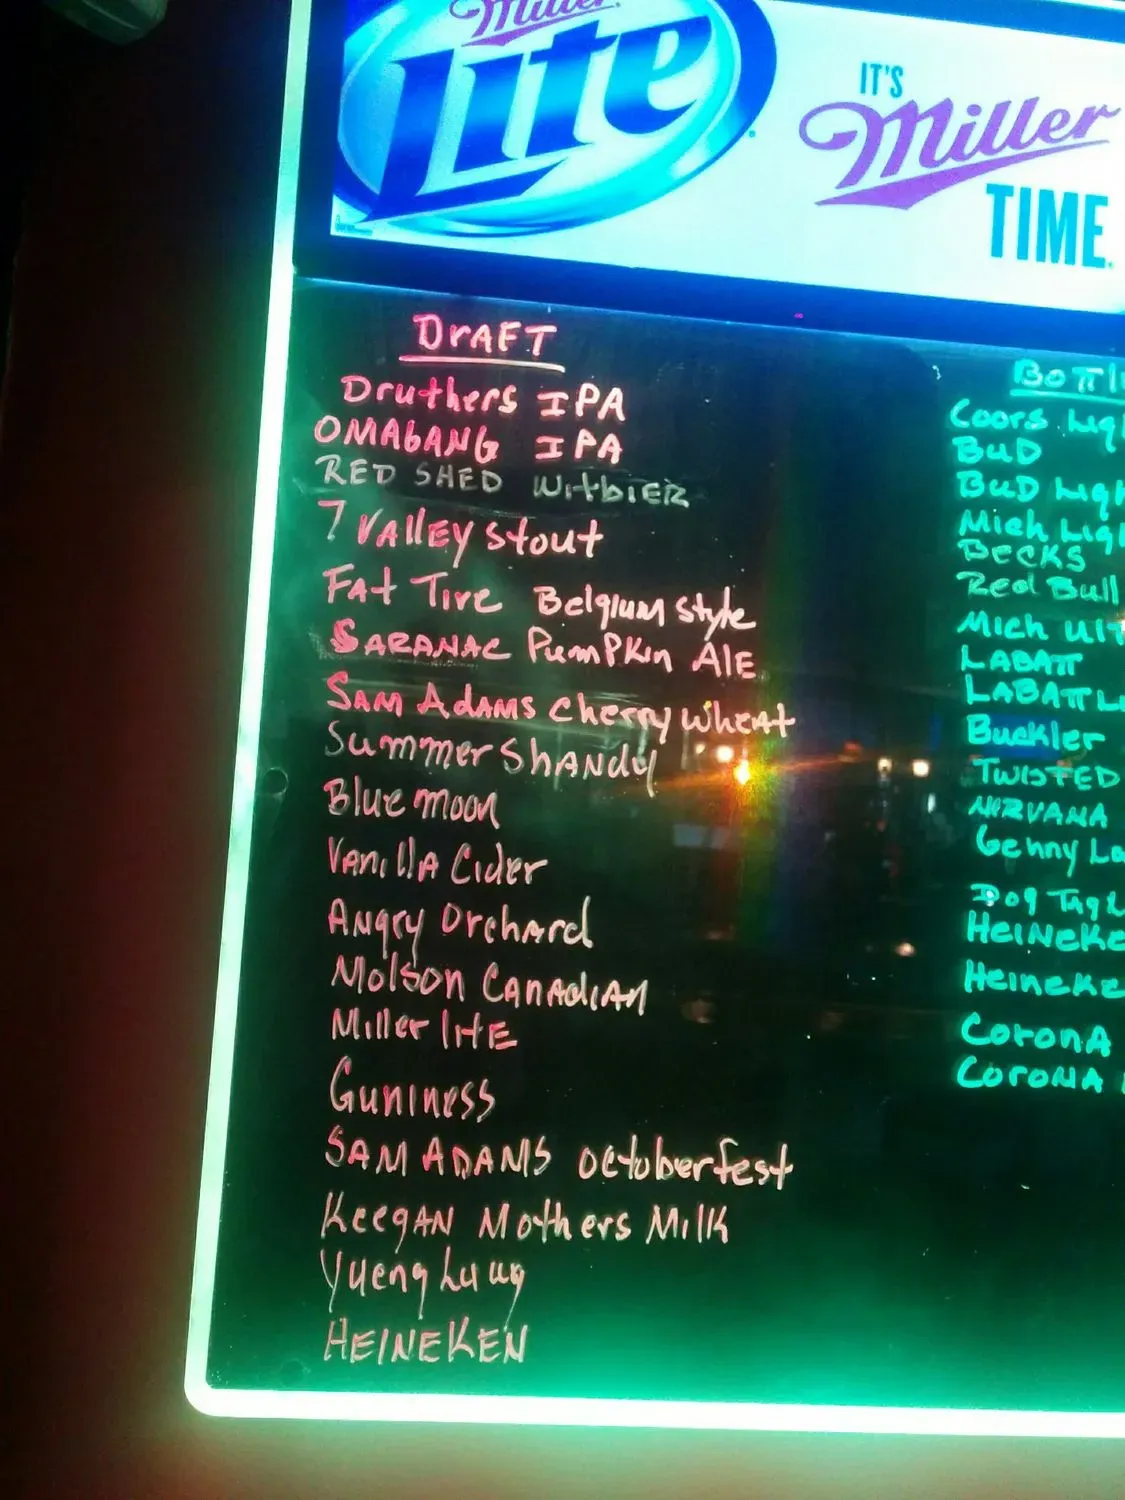 Miller
Lite
IT'S
Miller
TIME.
DrAFT
Druthers IPA
OMAbANG IPA
RED SHED WitbIER
7 VAllEY Stout
FAt Tire Belgium Style
SARANAC PumPKin AlE
SAM AdAMS Cherry WheAt
Summer ShANdy
Blue moon
VAnillA Cider
ANgry OrchArd
Molson CANAdiAN
Miller litE
Guniness
SAM ADAMS octoberfest
KeegAN Mothers Milk
YuengLuug
HEINEKEN
BOTTL
Coors Lig
BuD
BuD Ligh
Mich Lig
BECKS
Red Bull
Mich ult
LABATT
LABATT L
Buckler
TWISTED
NIRVANA
Genny La
Dog Tag L
HeiNeKe
HeineKe
CoronA
CoroNA